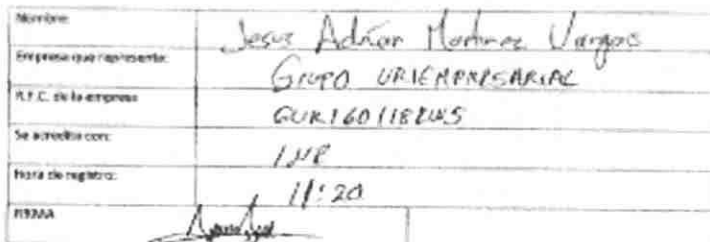 Nombre: Jesus Adrian Martinez Vargas
Empresa que representa: GRUPO URIEMPRESARIAL
R.F.C. de la empresa
Se acredita con: INE
Hora de registro: 11:20
FIRMA